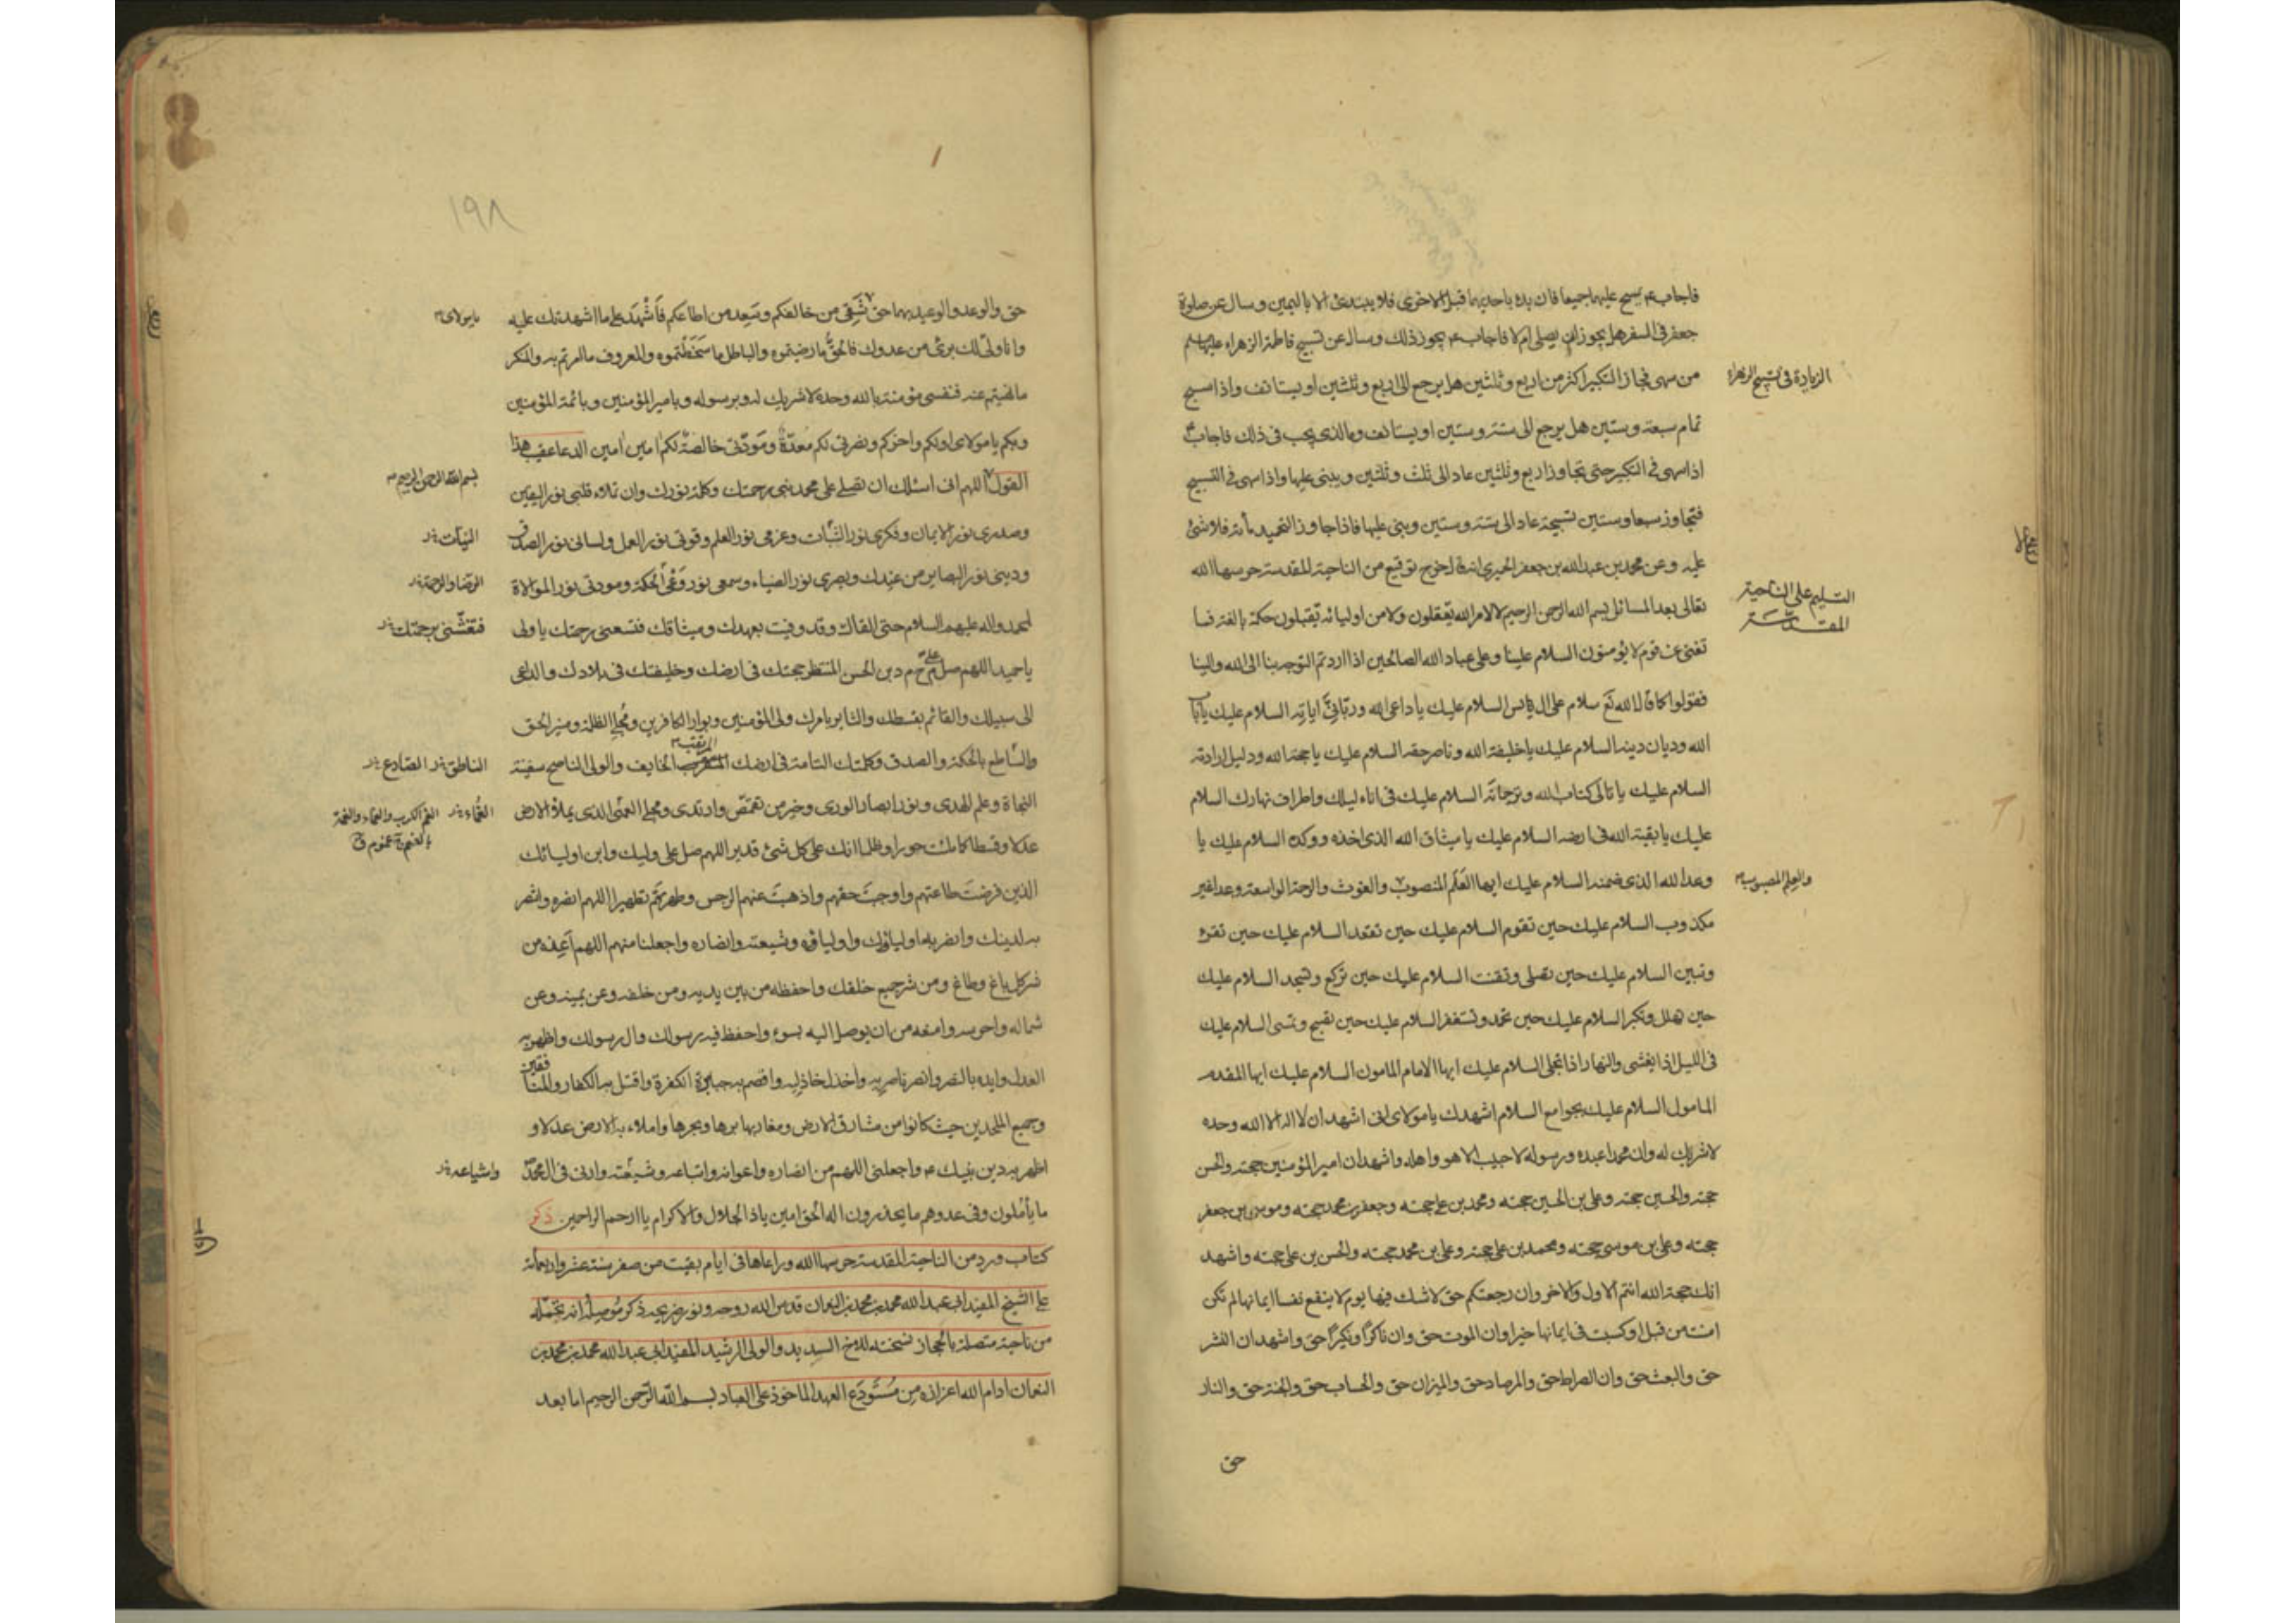 فاجاب ع يسبح عليهما جميعا فان بدء باحديهما قبل الاخرى فلا يبتدئ الا باليمين وسال عن صلوة
جعفر فى السفر هل يجوز ان يصلى ام لا فاجاب ع يجوز ذلك وسال عن تسبيح فاطمة الزهراء عليها سلم
من سهى فجاز التكبير اكثر من اربع وثلثين هل يرجع الى اربع وثلثين او يستانف واذا سبح
الزيادة فى تسبيح الزهراء
تمام سبعة وستين هل يرجع الى ستة وستين او يستانف وما الذى يجب فى ذلك فاجاب ع
اذا سهى فى التكبير حتى تجاوز اربع وثلثين عاد الى ثلث وثلثين ويبنى عليها واذا سهى فى التسبيح
فتجاوز سبعا وستين تسبيحة عاد الى ستة وستين وبنى عليها فاذا جاوز التحميد مأة فلا شئ
عليه وعن محمد بن عبدالله بن جعفر الحميرى انه قال خرج توقيع من الناحية المقدسة حرسها الله
التسليم على الناحية
المقدسة
تعالى بعد المسائل بسم الله الرحمن الرحيم لا لامر الله تعقلون ولا من اوليائه تقبلون حكمة بالغة فما
تغنى عن قوم لا يؤمنون السلام علينا وعلى عباد الله الصالحين اذا اردتم التوجه بنا الى الله والينا
فقولوا كما قال الله تع سلام على ال ياسين السلام عليك يا داعى الله وربانى اياته السلام عليك يا باب
الله وديان دينه السلام عليك يا خليفة الله وناصر حقه السلام عليك يا حجة الله ودليل ارادته
السلام عليك يا تالى كتاب الله وترجمانه السلام عليك فى اناء ليلك واطراف نهارك السلام
عليك يا بقية الله فى ارضه السلام عليك يا ميثاق الله الذى اخذه ووكده السلام عليك يا
وعد الله الذى ضمنه السلام عليك ايها العَلَم المنصوب والغوث والرحمة الواسعة وعدا غير
والعلم المصبوب
مكذوب السلام عليك حين تقوم السلام عليك حين تقعد السلام عليك حين تقرء
وتبين السلام عليك حين تصلى وتقنت السلام عليك حين تركع وتسجد السلام عليك
حين تهلل وتكبر السلام عليك حين تحمد وتستغفر السلام عليك حين تصبح وتمسى السلام عليك
فى الليل اذا يغشى والنهار اذا تجلى السلام عليك ايها الامام المامون السلام عليك ايها المقدم
المامول السلام عليك بجوامع السلام اشهدك يا مولاى انى اشهد ان لا اله الا الله وحده
لا شريك له وان محمدا عبده ورسوله لا حبيب الا هو واهله واشهد ان امير المؤمنين حجته والحسن
حجته والحسين حجته وعلى بن الحسين حجته ومحمد بن على حجته وجعفر بن محمد حجته وموسى بن جعفر
حجته وعلى بن موسى حجته ومحمد بن على حجته وعلى بن محمد حجته والحسن بن على حجته واشهد
انك حجة الله انتم الاول والاخر وان رجعتكم حق لا شك فيها يوم لا ينفع نفسا ايمانها لم تكن
امنت من قبل او كسبت فى ايمانها خيرا وان الموت حق وان ناكرًا ونكيرًا حق واشهد ان النشر
حق والبعث حق وان الصراط حق والمرصاد حق والميزان حق والحساب حق والجنة حق والنار
حق
١٩٨
حق والوعد والوعيد بهما حق شقى من خالفكم وسَعِد من اطاعكم فاشهد على ما اشهدتك عليه
يا مولاى
وانا ولى لك برئ من عدوك فالحق ما رضيتموه والباطل ما سخطتموه والمعروف ما امرتم به والمنكر
ما نهيتم عنه فنفسى مؤمنة بالله وحده لا شريك له وبرسوله وبامير المؤمنين وبائمة المؤمنين
وبكم يا مولاى اولكم واخركم ونصرتى لكم مُعدّة ومَودّتى خالصة لكم امين امين الدعا عقيب هذا
القول اللهم انى اسئلك ان تصلى على محمد نبى رحمتك وكلمة نورك وان تملاء قلبى نور اليقين
بسم الله الرحمن الرحيم
وصدرى نور الايمان وفكرى نور الثبات وعزمى نور العلم وقوتى نور العمل ولسانى نور الصدق
النيّات
ودينى نور البصاير من عندك وبصرى نور الضياء وسمعى نور وَعْى الحكمة ومودتى نور الموالاة
الرضا والرحمة
لمحمد واله عليهم السلام حتى القاك وقد وفيت بعهدك وميثاقك فتسعنى رحمتك يا ولى
فتغشّنى برحمتك
يا حميد اللهم صل على م ح م د بن الحسن المنتظر حجتك فى ارضك وخليفتك فى بلادك والداعى
الى سبيلك والقائم بقسطك والثاير بامرك ولى المؤمنين وبوار الكافرين ومُجلى الظلمة ومنير الحق
والساطع بالحكمة والصدق وكلمتك التامة فى ارضك المرتقب الخايف والولى الناصح سفينة
الناطق الصادع
النجاة وعلم الهدى ونور ابصار الورى وخير من تقمّص وارتدى ومجلى العمى الذى يملأ الارض
الغُمّاء الغم الكرب والغماء والغمة
عدلا وقسطا كما ملئت جورا وظلما انك على كل شئ قدير اللهم صل على وليك وابن اوليائك
الذين فرضت طاعتهم واوجبت حقهم واذهبت عنهم الرجس وطهرتهم تطهيرا اللهم انصره وانتصر
به لدينك وانصر به اوليائك واوليائه وشيعته وانصاره واجعلنا منهم اللهم اَعِذه من
شر كل باغ وطاغ ومن شر جميع خلقك واحفظه من بين يديه ومن خلفه وعن يمينه وعن
شماله واحرسه وامنعه من ان يوصل اليه بسوء واحفظ فيه رسولك وال رسولك واظهر به
العدل وايده بالنصر وانصر ناصريه واخذل خاذليه واقصم به جبابرة الكفرة واقتل به الكفار والمنافقين
وجميع الملحدين حيث كانوا من مشارق الارض ومغاربها برها وبحرها واملاء به الارض عدلا و
اظهر به دين نبيك ع واجعلنى اللهم من انصاره واعوانه واتباعه وشيعته وارنى فى ال محمد
واشياعه
ما يأملون وفى عدوهم ما يحذرون اله الحق امين ياذا الجلال والاكرام يا ارحم الراحمين ذكر
كتاب ورد من الناحية المقدسة حرسها الله ورعاها فى ايام بقيت من صفر سنة عشر واربعمأة
على الشيخ المفيد ابى عبدالله محمد بن محمد بن النعمان قدس الله روحه ونور ضريحه ذكر مُوصِله انه تحمّله
من ناحية متصلة بالحجاز نسخته للاخ السديد والولى الرشيد المفيد ابى عبدالله محمد بن محمد بن
النعمان ادام الله اعزازه من مُستَودَع العهد الماخوذ على العباد بسم الله الرحمن الرحيم اما بعد